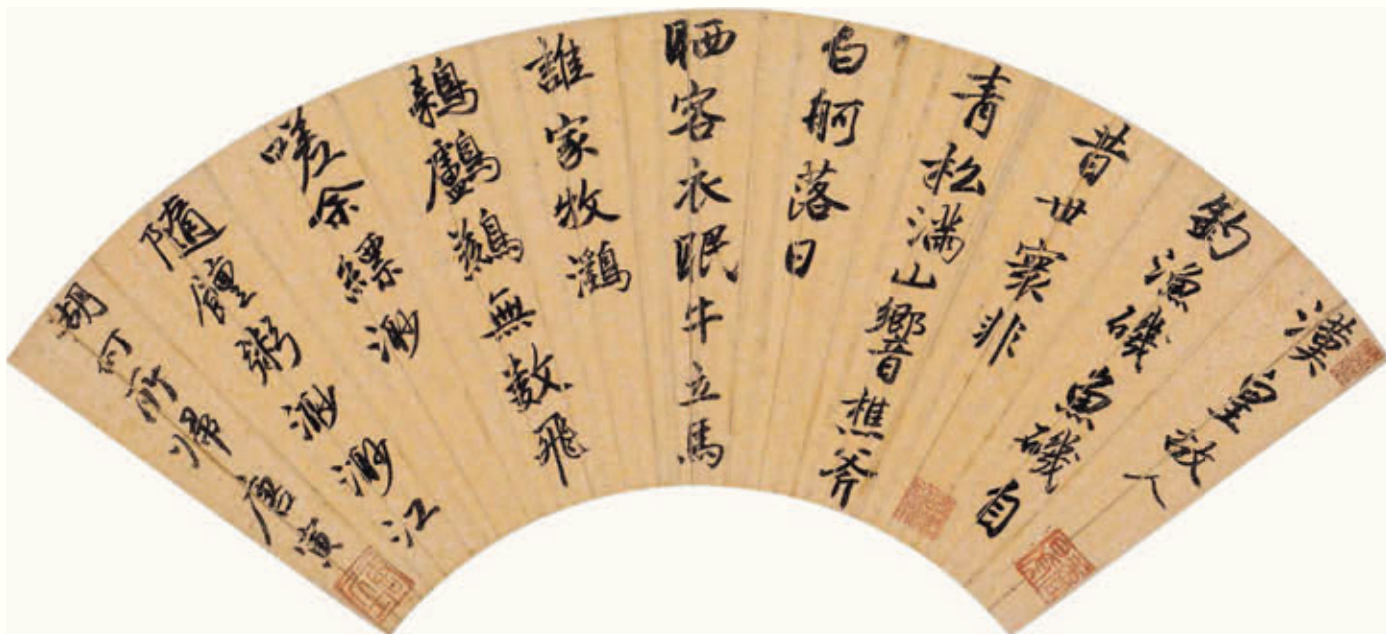 漢皇故人
釣漁磯魚磯自
昔世寰非
青松滿山響樵斧
白舸落日
晒客衣眠牛立馬
誰家牧鸂
鶒鸕鷀無數飛
嗟余縹渺
隨饘粥渺渺江
湖何所歸 唐寅